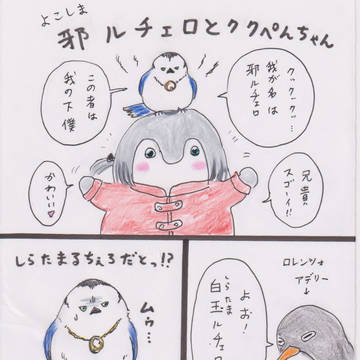 よこしま
邪ルチェロとククペんちゃん
クックークッ…
我が名は
邪ルチェロ
この者は
我の下僕
兄貴
スゴーイ!!
かわいい♥
しらたまるちぇろだとっ!?
ムゥ…
ロレンツォ
アデリー
よお!
しらたま
白玉ルチェロ